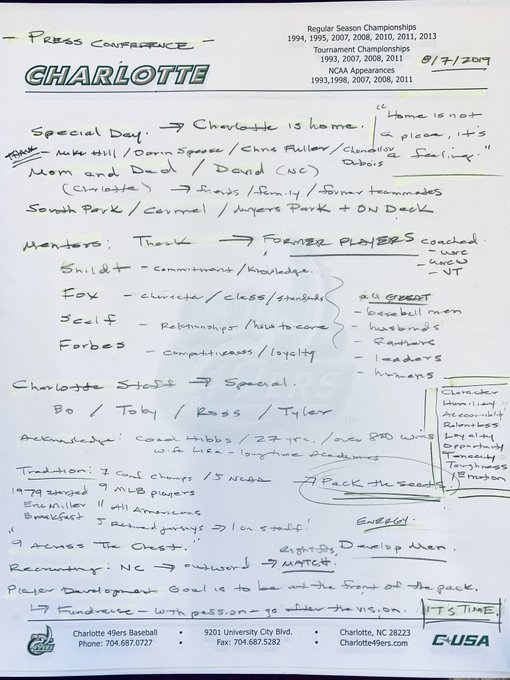 - PRESS CONFERENCE -
CHARLOTTE
Regular Season Championships
1994, 1995, 2007, 2008, 2010, 2011, 2013
Tournament Championships
1993, 2007, 2008, 2011
NCAA Appearances
1993,1998, 2007, 2008, 2011
8/7/2019
Special Day. → Charlotte is home.
"Home is not a place, it's a feeling."
Thank - Mike Hill / Darin Spease / Chris Fuller / Chancellor Dubois
Mom and Dad / David (NC)
(Charlotte) → friends / family / former teammates
South Park / Carmel / Myers Park + ON Deck
Mentors: Thank → FORMER PLAYERS coached.
- USC
- UNCW
- VT
Shildt - commitment / knowledge.
Fox - character / class / standards
Scalf - Relationships / how to care
Forbes - competitiveness / loyalty
GREAT
- baseball men
- husbands
- fathers
- leaders
- humans
Charlotte Staff → Special.
Bo / Toby / Ross / Tyler
Character
Humility
Accountability
Relentless
Loyalty
Opportunity
Tenacity
Toughness
/ Emotion
Acknowledge: Coach Hibbs / 27 yrs. / over 850 wins
wife Lisa - longtime Academics
Tradition: 7 Conf Champs / 5 NCAA → Pack the seats
1979 started 9 MLB players
Eric Miller 11 All Americans
Breakfast 5 Retired jerseys → 1 on staff!
ENERGY.
"9 Across The Chest."
Right fits, Develop Men.
Recruiting: NC → outward → MATCH.
Player Development Goal is to be at the front of the pack.
↳ Fundraise - with passion - go after the vision. IT'S TIME.
Charlotte 49ers Baseball • 9201 University City Blvd. • Charlotte, NC 28223
Phone: 704.687.0727 • Fax: 704.687.5282 • Charlotte49ers.com
C-USA
49ERS